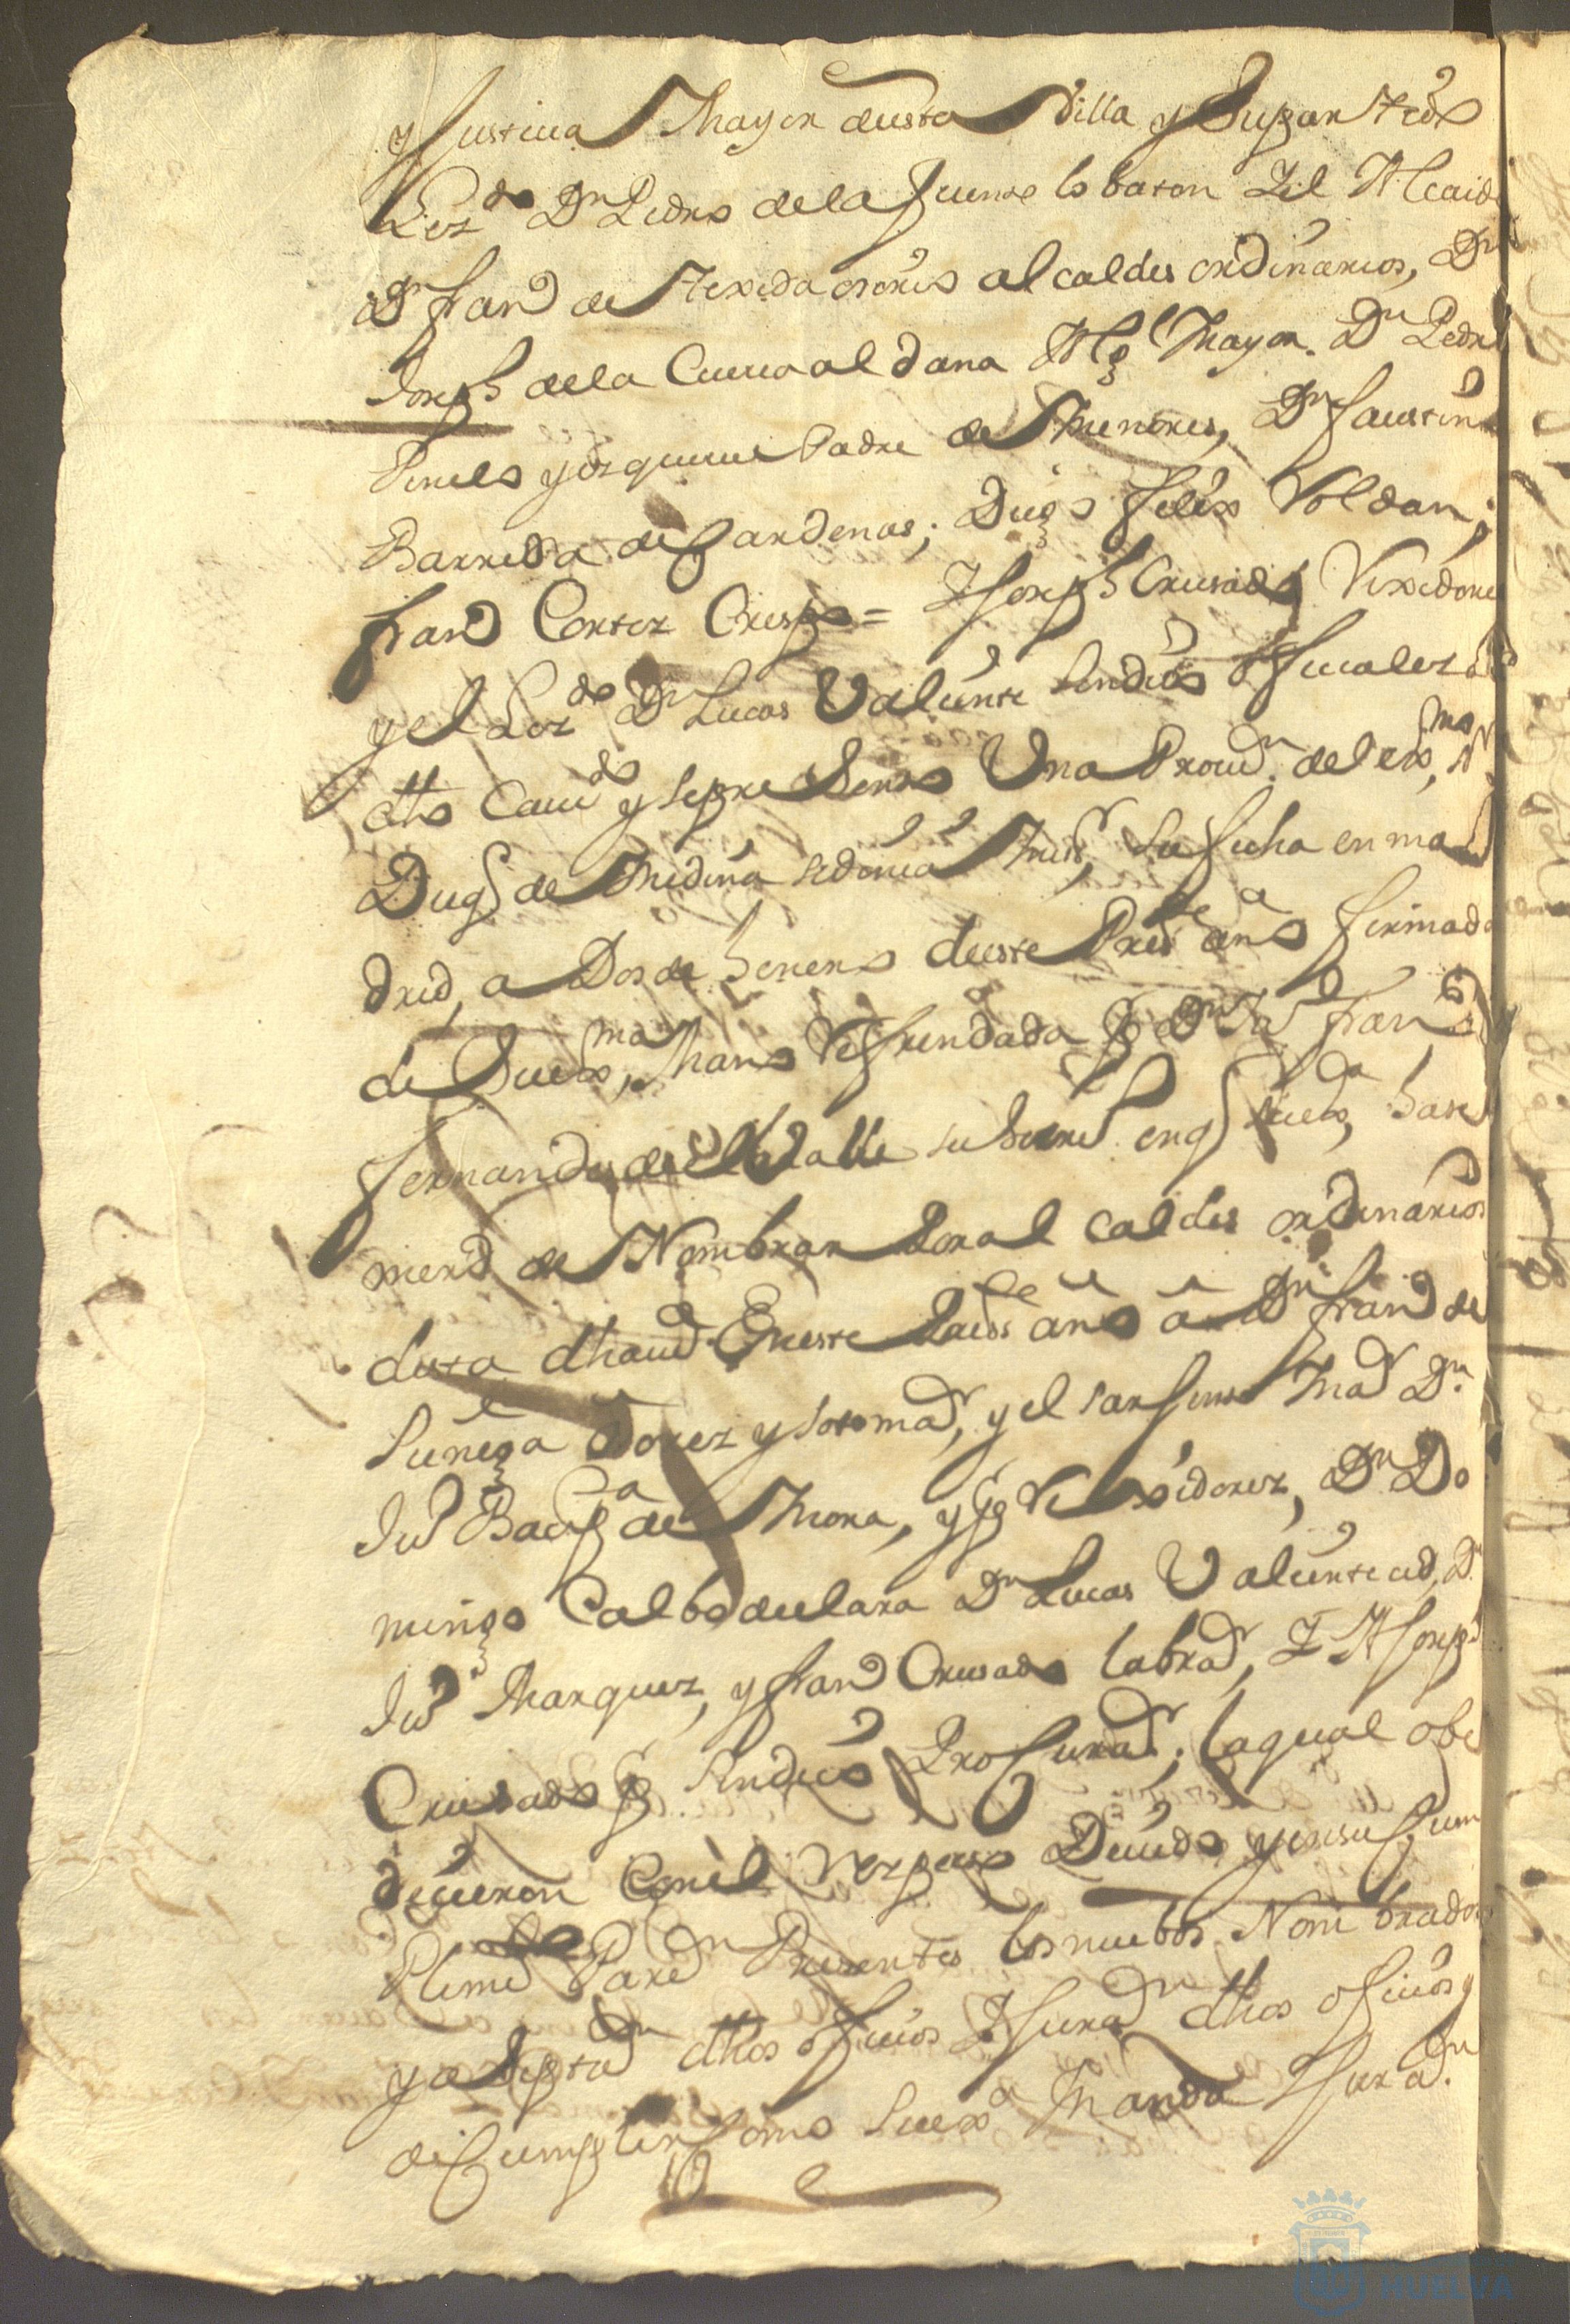 y Justicia Mayor desta Villa y Su partido
Lizdo Dn Pedro de la fuente lobaton Y el Alcaide
Dn franco de Texeda osorio alcaldes ordinarios, Dn
Joseph de la Cueua aldana Algl Mayor. Dn Pedro
Pinelo y esquiuel Padre de Menores, Dn faustino
Barreda de Cardenas; Diego felix Roldan;
franco Cortez Crespo = Y Joseph Crusado Rexidores
y el Lizdo Dn Lucas Valiente Sindico
dho Cauildo y se presento Una Proun. del exmo Sr
Duq de Medina sidonia Mi Sr, su fecha en ma
drid, a Dos de henero deeste Preste año firmada
de Su exma Mano Refrendada Dn Ju franco
fernandes del Valle su Secreto en q su exa hase
merd de Nombrar Por alcaldes ordinarios
desta dha uilla Eneste Preste año a Dn franco de
Suñega y sotomar, y el sarjento Mar Dn
Jun Baupta de Mora, y Rexidorez, Dn Do
mingo Calbo de lara Dn Lucas Valiente Dn
Jun Marquez, y franco Crusado labrador, Y A Joseph
Crusado Sindico Procurador, la qual obe
decieron Con el Respecto Deuido y en su Cum
plimto Pareron Presentes los nuebos Nombrados
y aseptaron dhos ofisios Y juraron dhos ofisios y
de Cumplir Como Su exa Manda Y juraron.